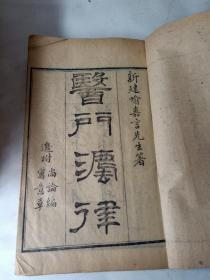 新建喻嘉言先生著
醫門灋律
進附尚論編
寓意草